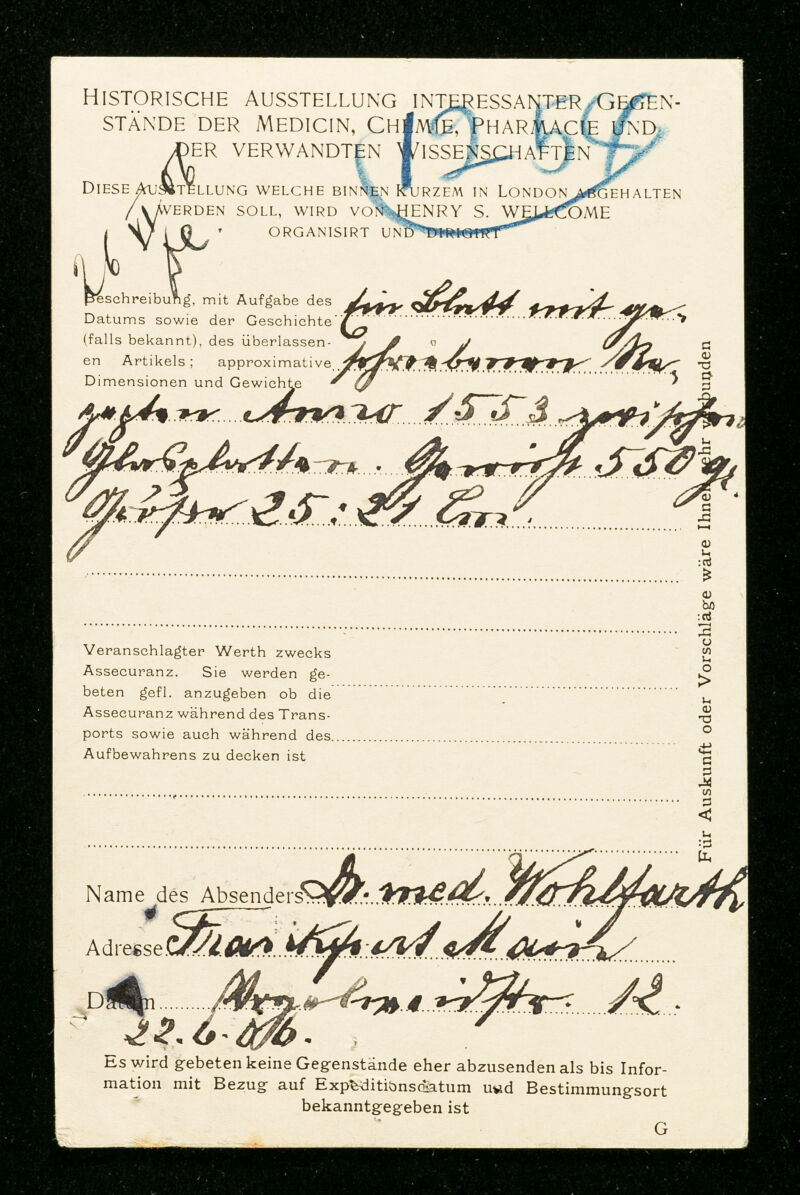 HISTORISCHE AUSSTELLUNG INTERESSANTER GEGEN-
STÄNDE DER MEDICIN, CHEMIE, PHARMACIE UND
DER VERWANDTEN WISSENSCHAFTEN
1254
DIESE AUSSTELLUNG WELCHE BINNEN KURZEM IN LONDON ABGEHALTEN
WERDEN SOLL, WIRD VON HENRY S. WELLCOME
ORGANISIRT UND DIRIGIRT
26 VI 06
Beschreibung, mit Aufgabe des
Datums sowie der Geschichte
(falls bekannt), des überlassen-
en Artikels; approximative
Dimensionen und Gewichte
Ein Blatt mit ge-
schriebenen Re-
zepten Anno 1553 zwischen
Glasplatten. Gewicht 550 gr.
Größe 25:21 Cm.
Veranschlagter Werth zwecks
Assecuranz. Sie werden ge-
beten gefl. anzugeben ob die
Assecuranz während des Trans-
ports sowie auch während des
Aufbewahrens zu decken ist
Name des Absenders Dr. med. Wohlfarth
Adresse Frankfurt a Main
Datum Vogelweidstr. 12.
22.6.06.
Es wird gebeten keine Gegenstände eher abzusenden als bis Infor-
mation mit Bezug auf Expeditionsdatum und Bestimmungsort
bekanntgegeben ist
G
Für Auskunft oder Vorschläge wäre Ihnen sehr verbunden